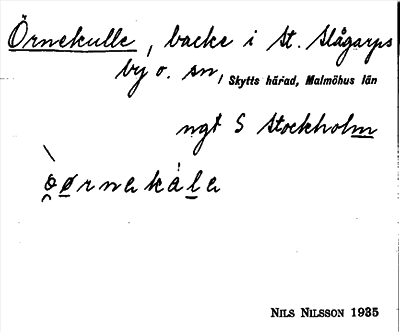 Örnekulle, backe i St. Slågarps
by o. sn, Skytts härad, Malmöhus län
ngt S Stockholm
NILS NILSSON 1935